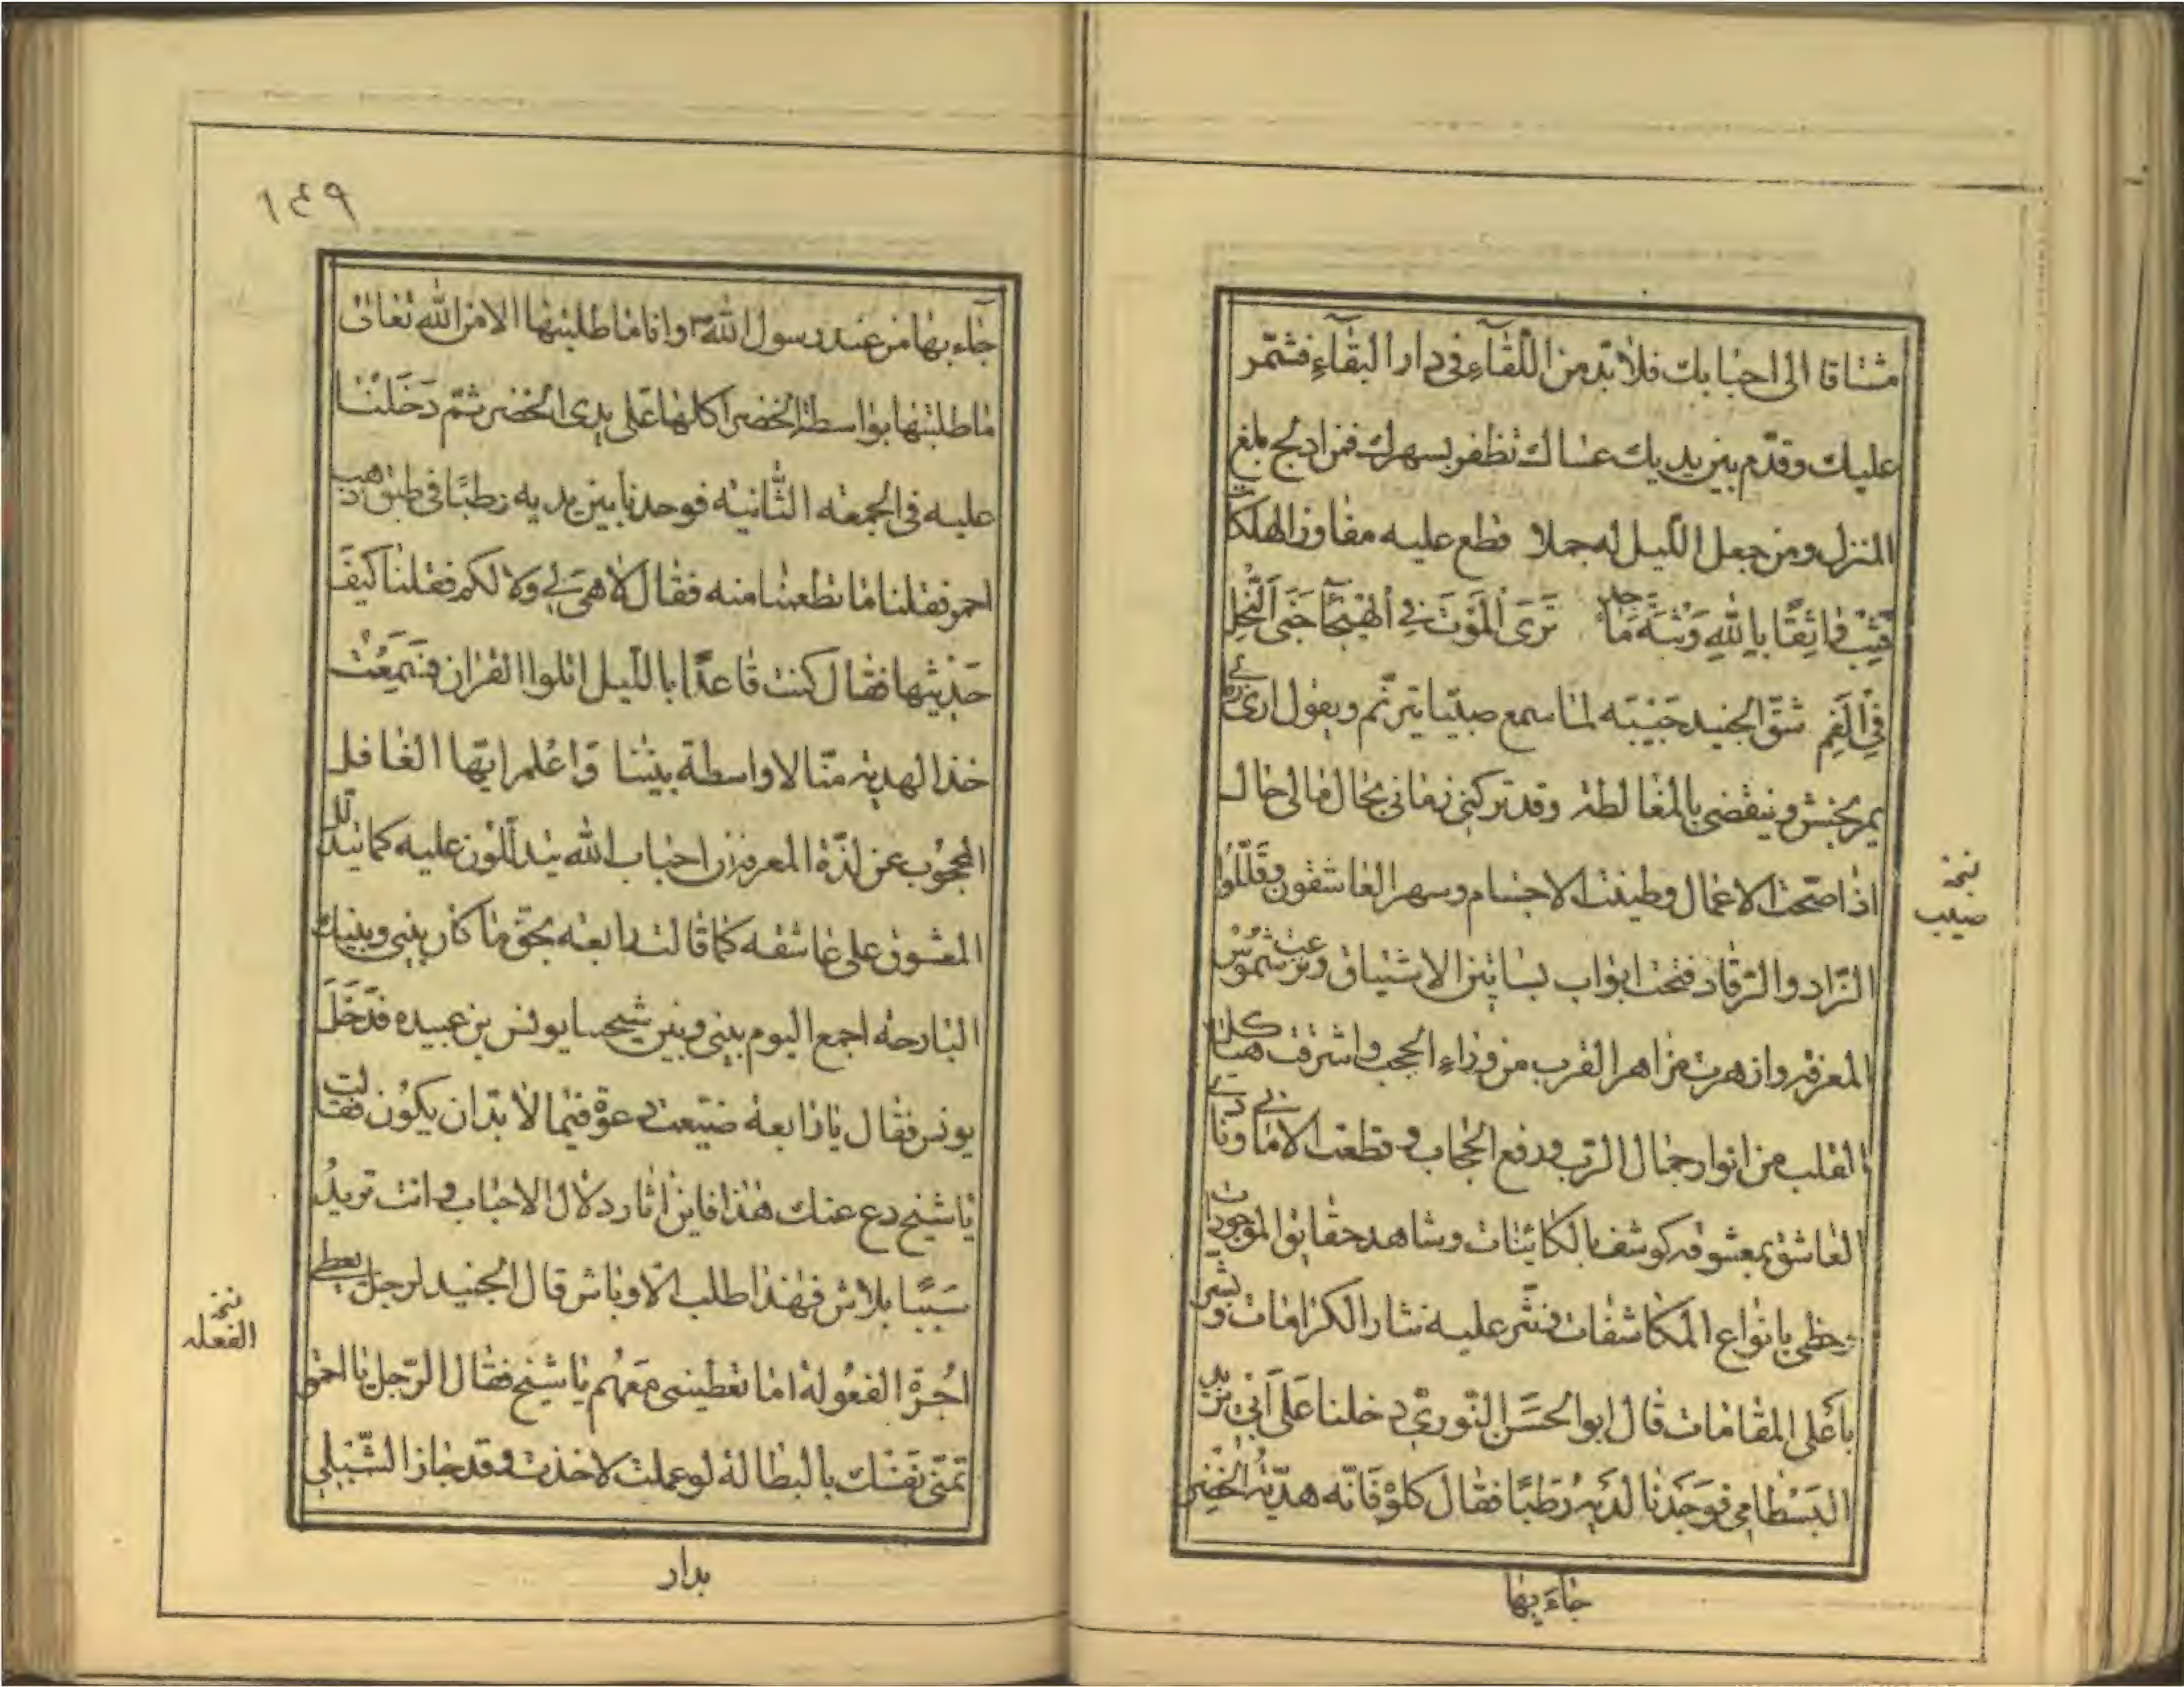 مشتاقا الى احبابك فلا بدّ من اللّقآءِ فى دار البقآءِ فشمّر
عليك وقدّم بين يديك عساك تظفر بسهرك فمن ادلج بلغ
المنزل ومن جعل اللّيل له جملا قطع عليه مفاوز الهلكات
فَثِبْ وَاثِقًا بِاللهِ وَثْبَةَ مَاجِدٍ تَرَى اَلْمَوْتَ فِي اَلْهَيْجَآ جَنَى اَلنَّحْلِ
فِي اَلْفَمِ شقّ الجنيد جَيْبَه لمّا سمع صبيّا يترنّم ويقول ارى
يمر بخس وينقضى بالمغالطة وقد تركنى زمانى بحال مالى حال
اذا صحّت الاعمال وطيّنت الاجسام وسهر العاشقون وقَلّلُوا
الزّاد والرّقاد فتحت ابواب بساتين الاشتياق وبزغت شُمُوْس
المعرفة وازهرت مزاهر القرب من وراءِ الحجب واشرقت هياكل
القلب من انوار جمال الرّب ورفع الحجاب وقطعت الامانى ونادى
العاشق بمعشوقه كوشف بالكائنات وشاهد حقايق الموجودات
وحظى بانواع المكاشفات فنثر عليه نثار الكرامات وبشر
باَعْلى المقامات قال ابو الحَسَن النّورىّ دخلنا عَلَى اَبى يزيد
البَسْطامى فوَجَدْنا لدَيْهِ رُطَبًا فقال كلوْ فَانّه هديّةُ الخضِر
جاءَ بها
نسخه
صيب
١٤٩
جآء بها من عند رسول الله ص وانا ما طلبتها الا من الله تعالى
ما طلبتها بواسطة الخضر اكلها عَلى يدى الخضر ثمّ دَخَلْنَا
عليه فى الجمعه الثّانيه فوجدنا بين يديه رطبًا فى طبق ذهب
احمر فقلنا ما تطعمنا منه فقال لا هى لى وَلا لكم فقلنا كَيفَ
حَدِيثها فقال كنت قاعدًا بالليل اتلوا القران فسَمِعْت
خذ الهدية منّا لا واسطة بيننا وَاعْلم ايّها الغافل
المحجُوب عن لذّة المعرفة ان احباب الله يتدلّلون عليه كما يتدلّل
المعشوق على عاشقه كما قالت رابعه بحقّ ما كان بينى وبينك
البارحه اجمع اليوم بينى وبين شيخنا يونس بن عبيده فدَخَلَ
يونس فقال يا رابعه ضيّعت دعوة فيما لا بدّ ان يكُون فقالت
يا شيخ دع عنك هٰذا فاين اثار دلال الاحباب وانت تريدُ
سَبَبًا بلاش فهٰذا طلب الاوباش قال الجنيد لرجل يعطى
اجُرة الفعُولة اما تعطينى مَعَهُم يا شيخ فقال الرّجل يا احمق
تمنّى نَفْسَك بالبطالة لو عملت لاخذت وقد جاز الشّبلى
بدار
نسخه
الفعله